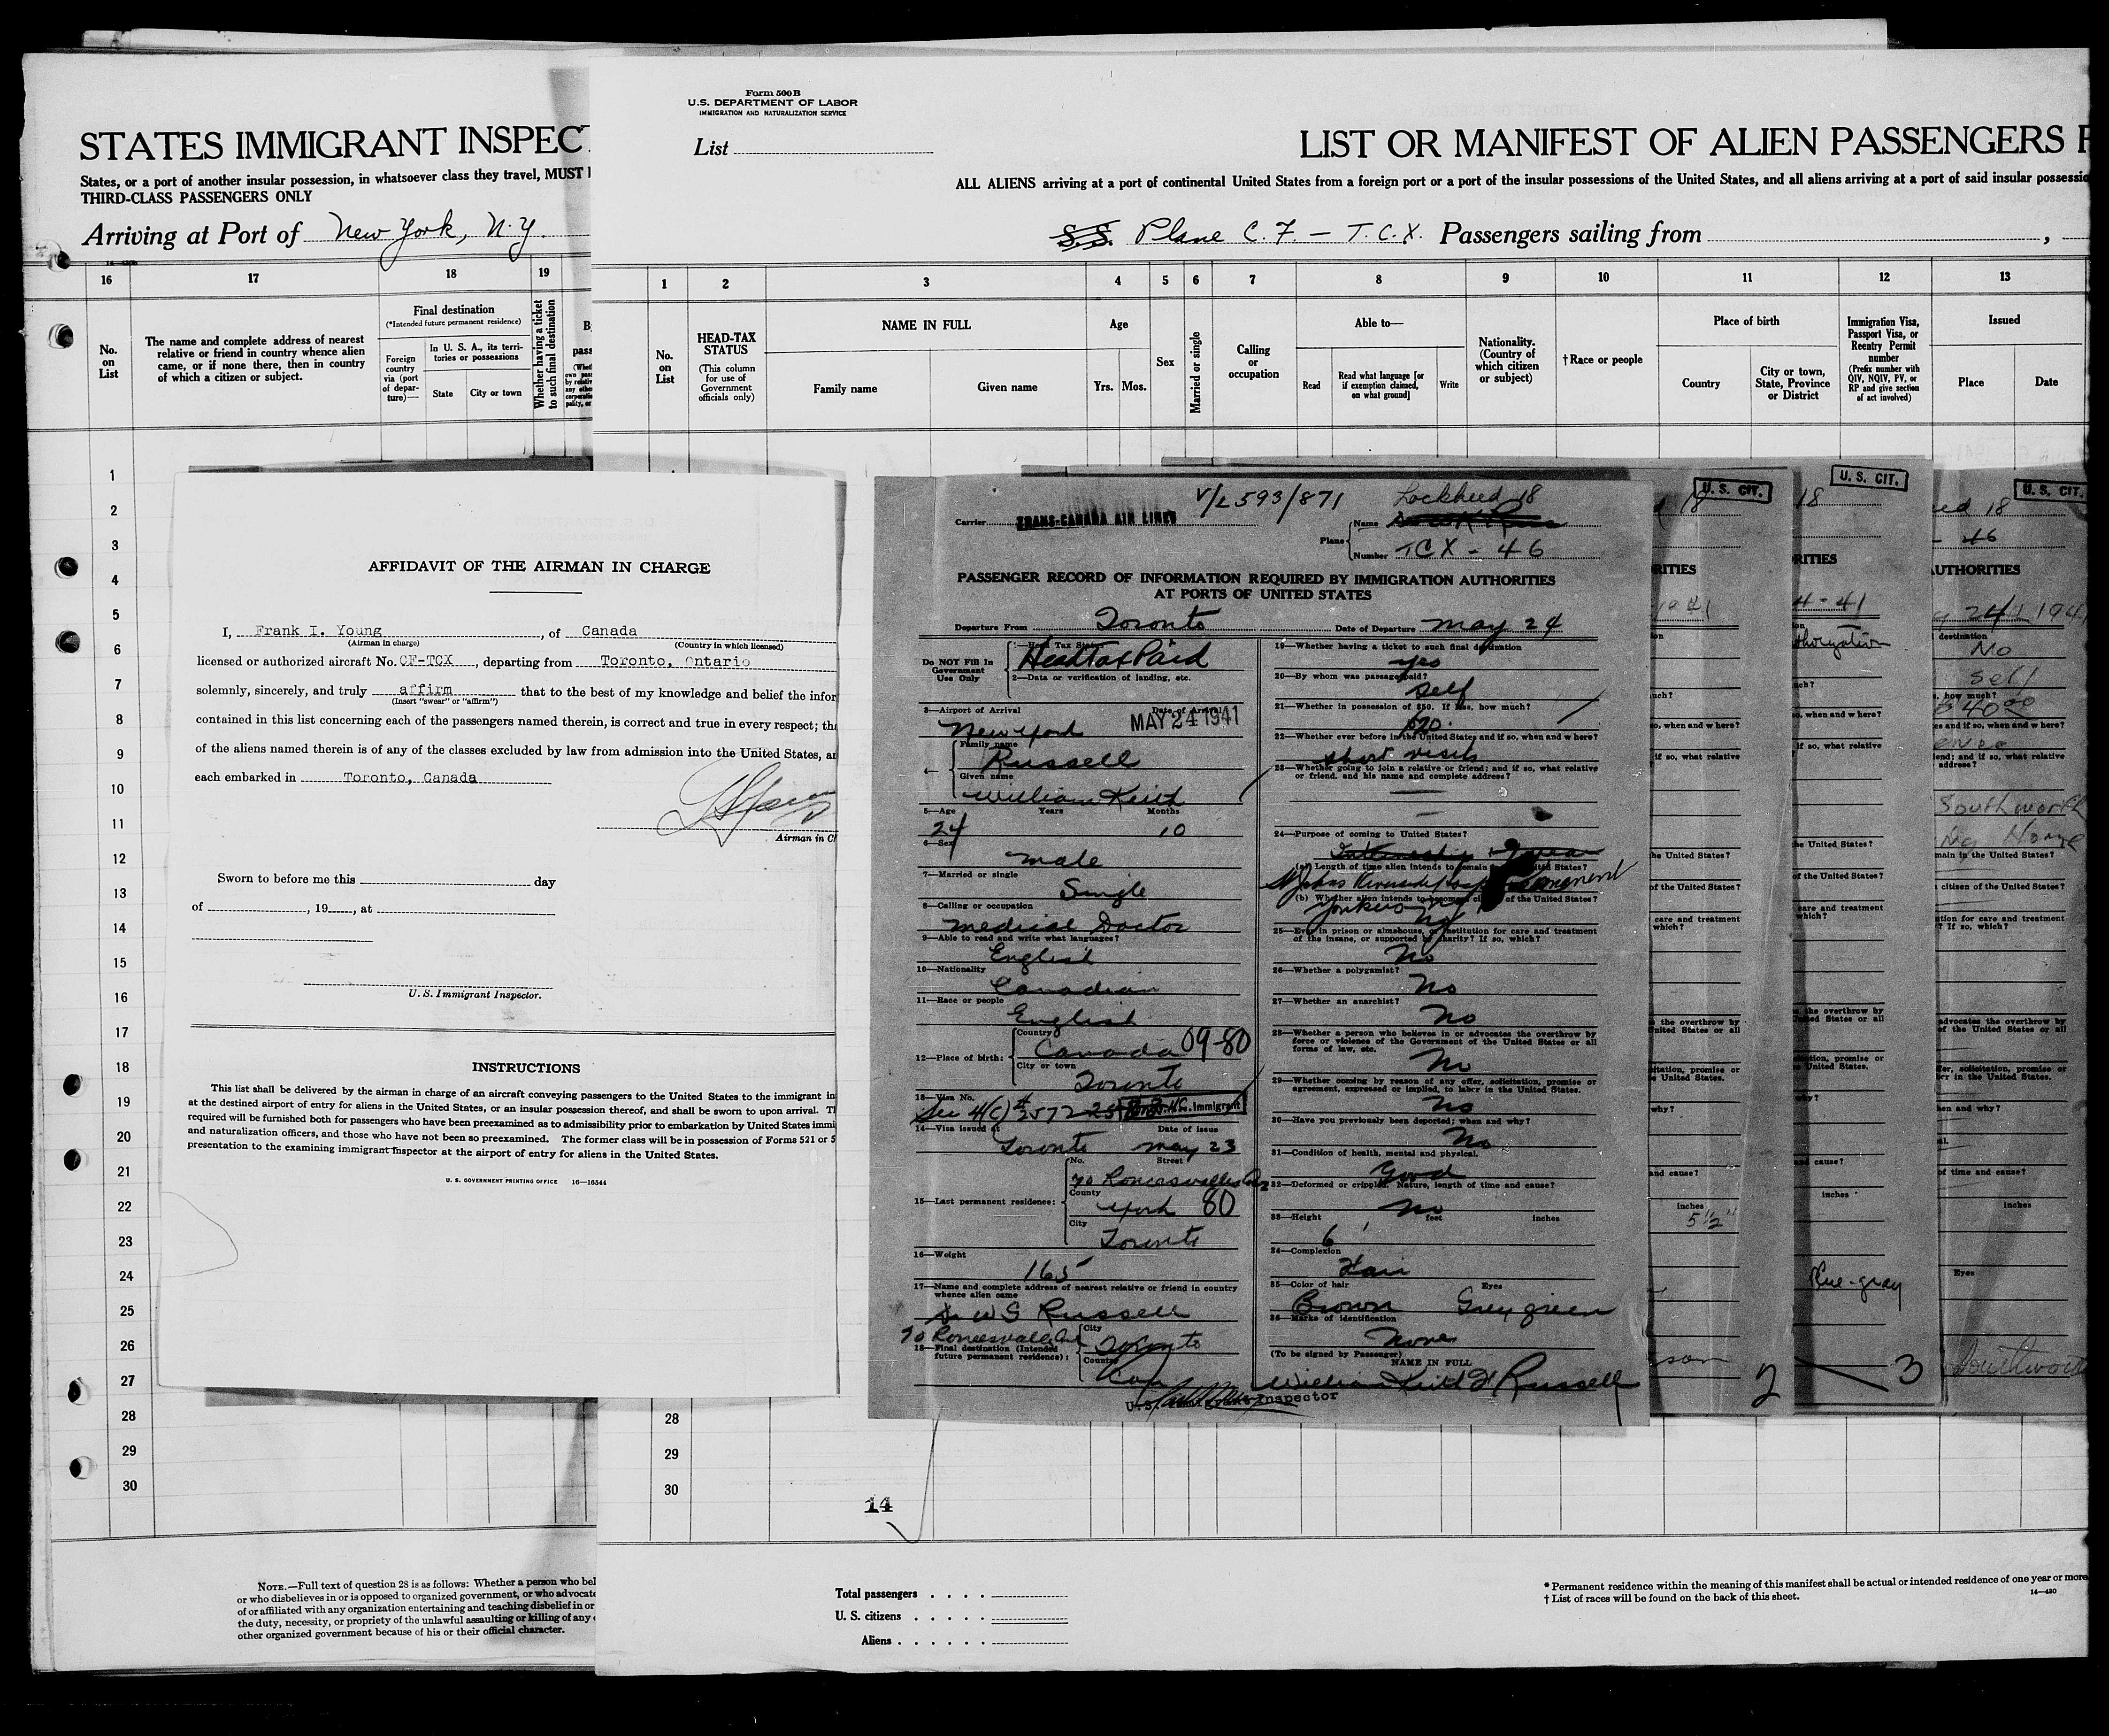 STATES IMMIGRANT INSPECT
States, or a port of another insular possession, in whatsoever class they travel, MUST
THIRD-CLASS PASSENGERS ONLY
Arriving at Port of New York, N.Y.
16 17 18 19
No. on List
The name and complete address of nearest relative or friend in country whence alien came, or if none there, then in country of which a citizen or subject.
Final destination
(*Intended future permanent residence)
Foreign country via (port of departure)—
In U. S. A., its territories or possessions
State City or town
Whether having a ticket to such final destination
Form 500 B
U.S. DEPARTMENT OF LABOR
IMMIGRATION AND NATURALIZATION SERVICE
List
LIST OR MANIFEST OF ALIEN PASSENGERS F
ALL ALIENS arriving at a port of continental United States from a foreign port or a port of the insular possessions of the United States, and all aliens arriving at a port of said insular possessio
S.S. Plane C.F. – T.C.X. Passengers sailing from
1 2 3 4 5 6 7 8 9 10 11 12 13
No. on List
HEAD-TAX STATUS
(This column for use of Government officials only)
NAME IN FULL
Family name Given name
Age
Yrs. Mos.
Sex
Married or single
Calling or occupation
Able to—
Read
Read what language [or if exemption claimed, on what ground]
Write
Nationality. (Country of which citizen or subject)
†Race or people
Place of birth
Country
City or town, State, Province or District
Immigration Visa, Passport Visa, or Reentry Permit number
(Prefix number with QIV, NQIV, PV, or RP and give section of act involved)
Issued
Place Date
1
2
3
4
5
6
7
8
9
10
11
12
13
14
15
16
17
18
19
20
21
22
23
24
25
26
27
28
29
30
AFFIDAVIT OF THE AIRMAN IN CHARGE
I, Frank I. Young, of Canada
(Airman in charge) (Country in which licensed)
licensed or authorized aircraft No. CF-TCX, departing from Toronto, Ontario
solemnly, sincerely, and truly affirm that to the best of my knowledge and belief the infor
(Insert "swear" or "affirm")
contained in this list concerning each of the passengers named therein, is correct and true in every respect; tha
of the aliens named therein is of any of the classes excluded by law from admission into the United States, an
each embarked in Toronto, Canada
Airman in Ch
Sworn to before me this day
of , 19 , at
U. S. Immigrant Inspector.
INSTRUCTIONS
This list shall be delivered by the airman in charge of an aircraft conveying passengers to the United States to the immigrant in
at the destined airport of entry for aliens in the United States, or an insular possession thereof, and shall be sworn to upon arrival. Th
required will be furnished both for passengers who have been preexamined as to admissibility prior to embarkation by United States immi
and naturalization officers, and those who have not been so preexamined. The former class will be in possession of Forms 521 or 5
presentation to the examining immigrant inspector at the airport of entry for aliens in the United States.
U. S. GOVERNMENT PRINTING OFFICE 16—16544
V/L 593/871
Carrier TRANS-CANADA AIR LINES
Plane Name Lockheed 18
Number TCX - 46
PASSENGER RECORD OF INFORMATION REQUIRED BY IMMIGRATION AUTHORITIES
AT PORTS OF UNITED STATES
Departure From Toronto Date of Departure May 24
Do NOT Fill In Government Use Only
1—Head Tax Status
Head Tax Paid
2—Data or verification of landing, etc.
3—Airport of Arrival Date of Arrival
New York MAY 24 1941
4— Family name
Russell
Given name
William Keith
5—Age Years Months
24 10
6—Sex
male
7—Married or single
Single
8—Calling or occupation
medical Doctor
9—Able to read and write what languages?
English
10—Nationality
Canadian
11—Race or people
English
12—Place of birth: Country
Canada 09-80
City or town
Toronto
13—Visa No.
Sec 4(c) # 2572 Immigrant
14—Visa issued at Date of issue
Toronto May 23
15—Last permanent residence: No. Street
70 Roncesvalles
County
York 80
City
Toronto
16—Weight
165
17—Name and complete address of nearest relative or friend in country whence alien came
Dr W G Russell
70 Roncesvalles
18—Final destination (Intended future permanent residence): City
Toronto
Country
Can
U.S. Immigrant Inspector
19—Whether having a ticket to such final destination
yes
20—By whom was passage paid?
Self
21—Whether in possession of $50. If less, how much?
22—Whether ever before in the United States and if so, when and where?
short visits
23—Whether going to join a relative or friend; and if so, what relative or friend, and his name and complete address?
24—Purpose of coming to United States?
Internship
(a) Length of time alien intends to remain in United States?
St Johns Riverside Hosp Permanent
(b) Whether alien intends to become citizen of the United States?
Yonkers NY No
25—Ever in prison or almshouse, or institution for care and treatment of the insane, or supported by charity? If so, which?
No
26—Whether a polygamist?
No
27—Whether an anarchist?
No
28—Whether a person who believes in or advocates the overthrow by force or violence of the Government of the United States or all forms of law, etc.
No
29—Whether coming by reason of any offer, solicitation, promise or agreement, expressed or implied, to labor in the United States.
No
30—Have you previously been deported; when and why?
No
31—Condition of health, mental and physical.
Good
32—Deformed or crippled. Nature, length of time and cause?
No
33—Height feet inches
6'
34—Complexion
Fair
35—Color of hair Eyes
Brown Grey green
36—Marks of identification
None
(To be signed by Passenger)
NAME IN FULL
William Keith Russell
U. S. CIT.
18
RITIES
1941
inches
5 1/2"
son
2
U. S. CIT.
18
RITIES
4-41
inches
Blue-gray
3
U. S. CIT.
18
46
AUTHORITIES
24 194
destination
No
self
how much?
40 00
Southworth
Home
inches
Eyes
Southwort
28
29
30
14
NOTE.—Full text of question 28 is as follows: Whether a person who bel
or who disbelieves in or is opposed to organized government, or who advocate
of or affiliated with any organization entertaining and teaching disbelief in or
the duty, necessity, or propriety of the unlawful assaulting or killing of any
other organized government because of his or their official character.
Total passengers
U. S. citizens
Aliens
* Permanent residence within the meaning of this manifest shall be actual or intended residence of one year or more
† List of races will be found on the back of this sheet.
14—420